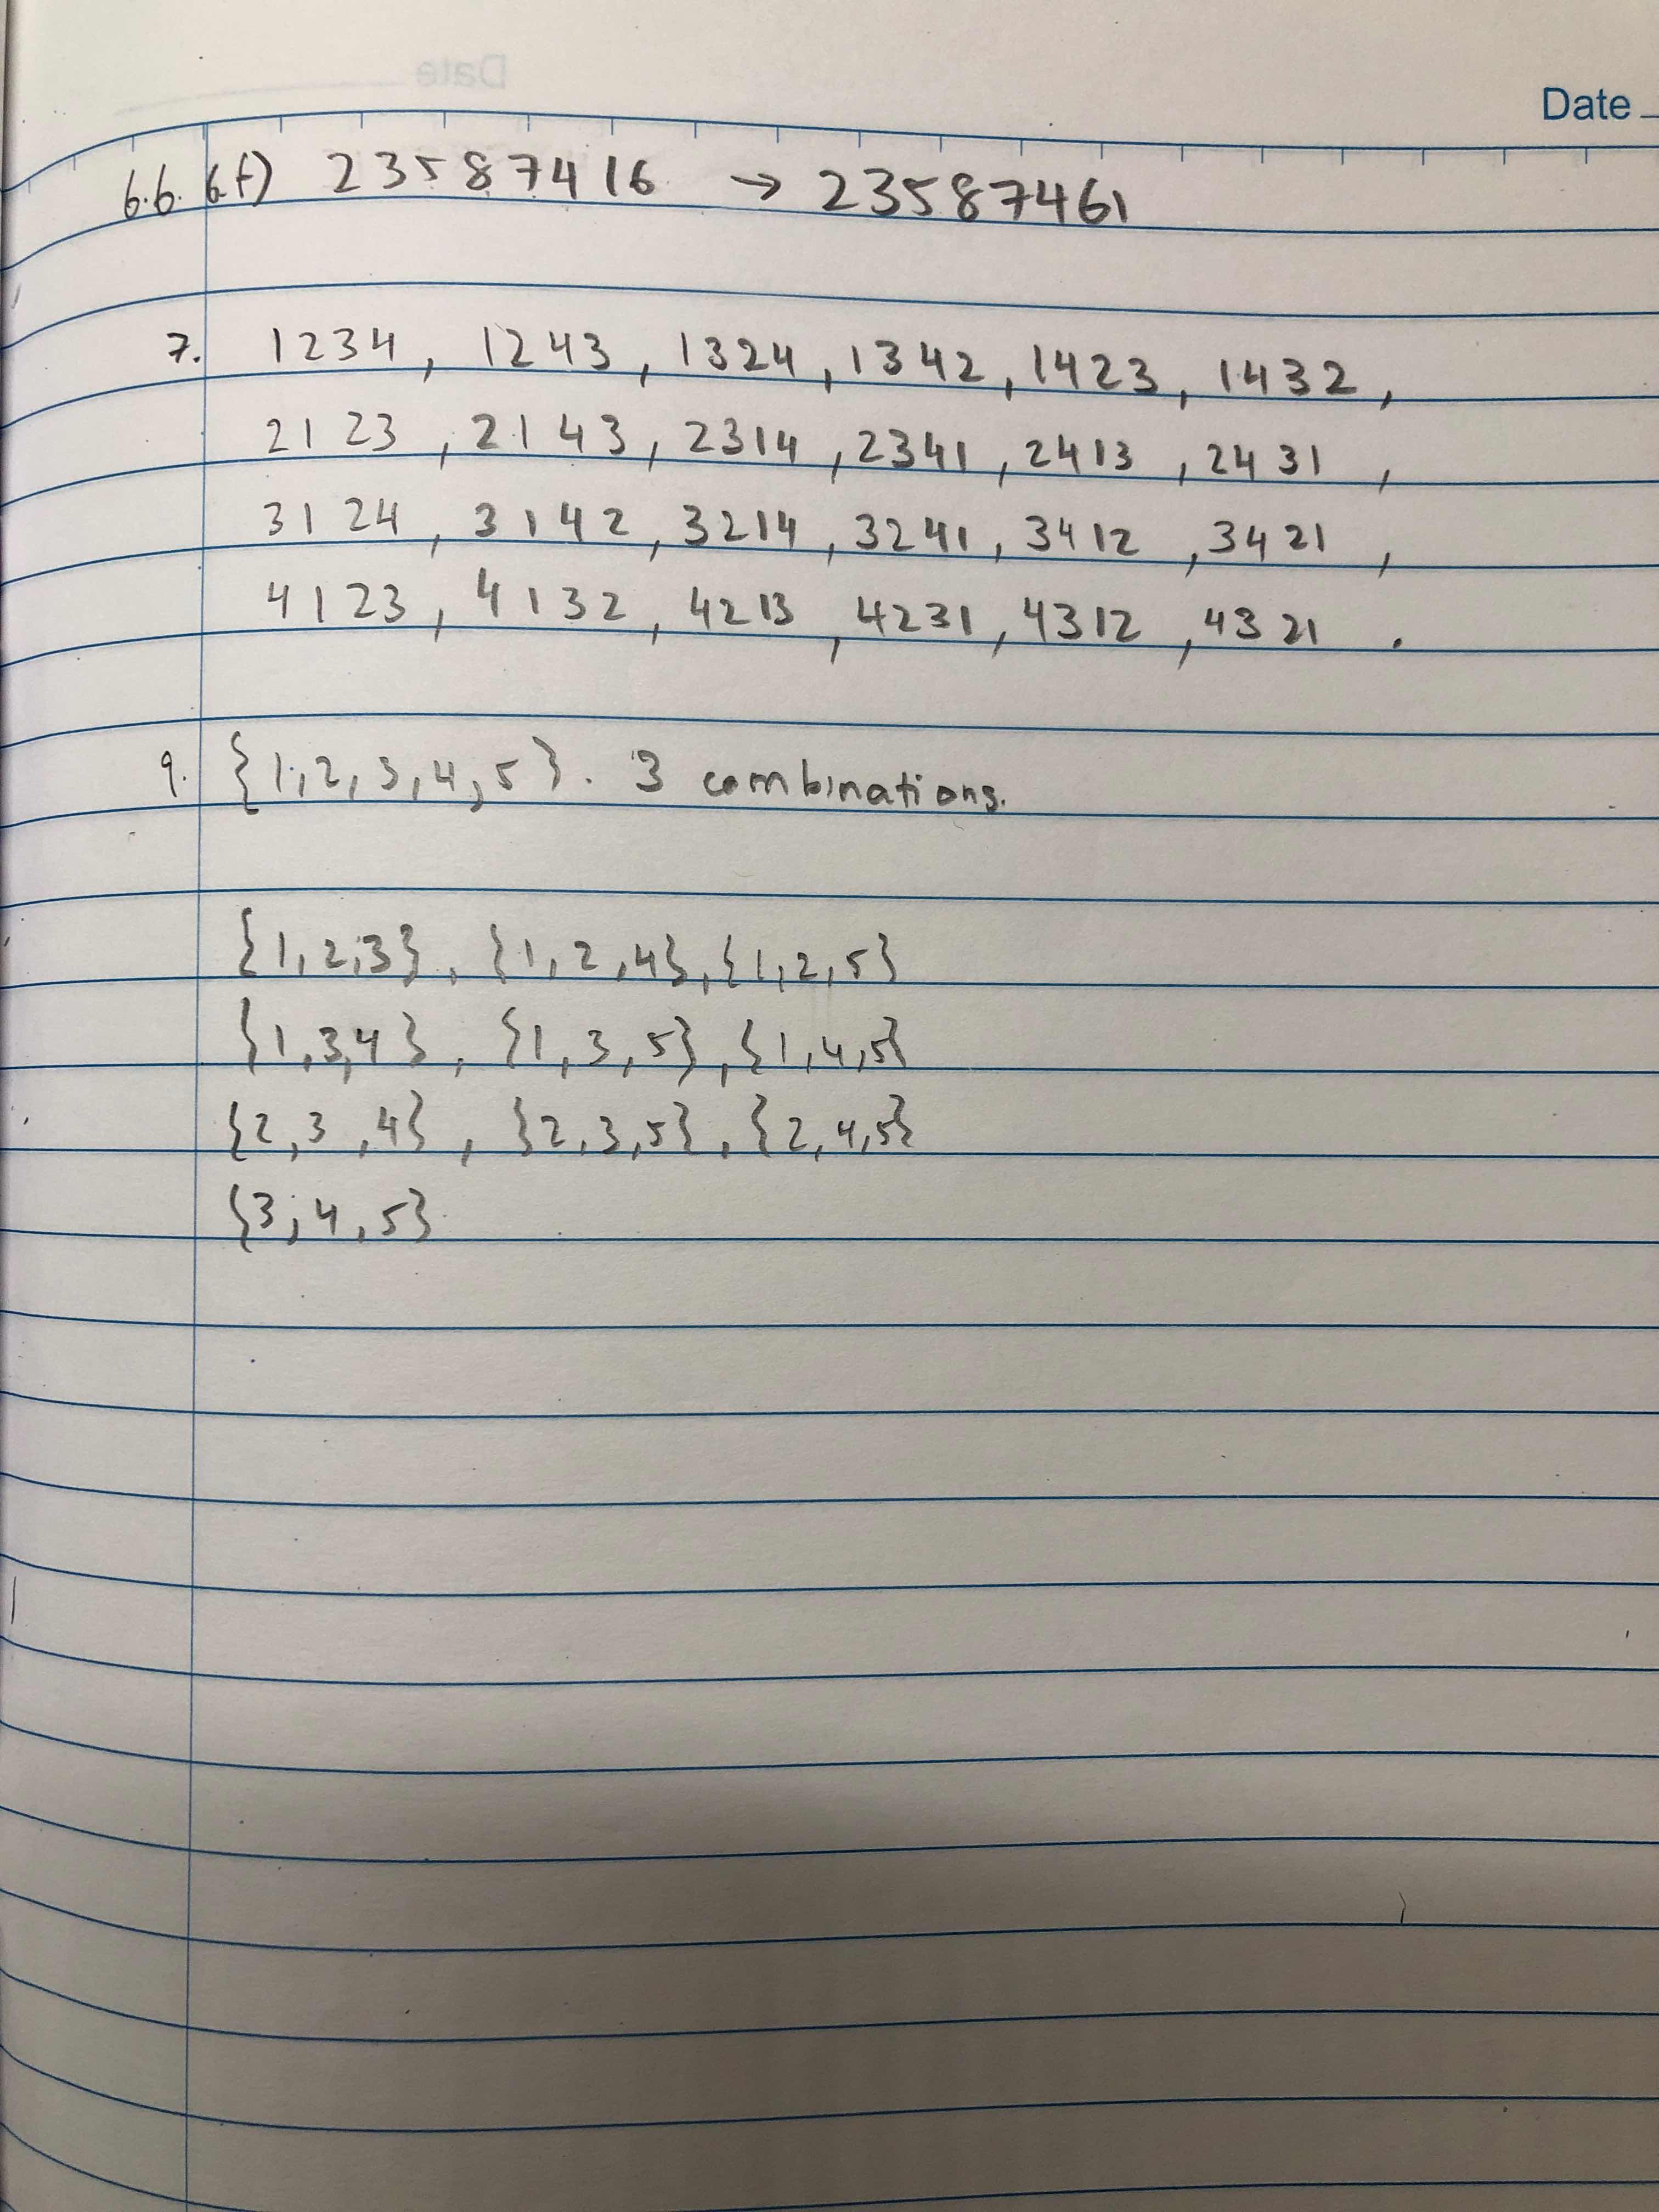 Date
6.6. 6.f) 23587416 → 23587461
7. 1234, 1243, 1324, 1342, 1423, 1432,
2123, 2143, 2314, 2341, 2413, 2431,
3124, 3142, 3214, 3241, 3412, 3421,
4123, 4132, 4213, 4231, 4312, 4321.
9. {1,2,3,4,5}. 3 combinations.
{1,2,3}, {1,2,4}, {1,2,5}
{1,3,4}, {1,3,5}, {1,4,5}
{2,3,4}, {2,3,5}, {2,4,5}
{3,4,5}